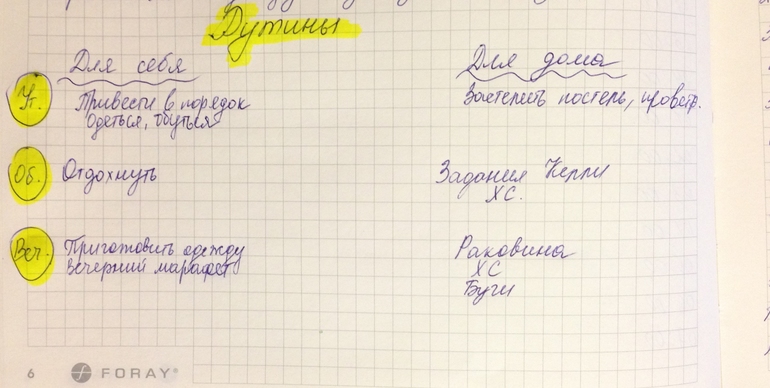 Рутины
Для себя
Для дома
Ут.
Привести в порядок
Одеться, обуться
Застелить постель, проветр.
Об.
Отдохнуть
Задания Келли
ХС.
Веч.
Приготовить одежду
Вечерний марафет
Раковина
ХС
Буги
6
FORAY®